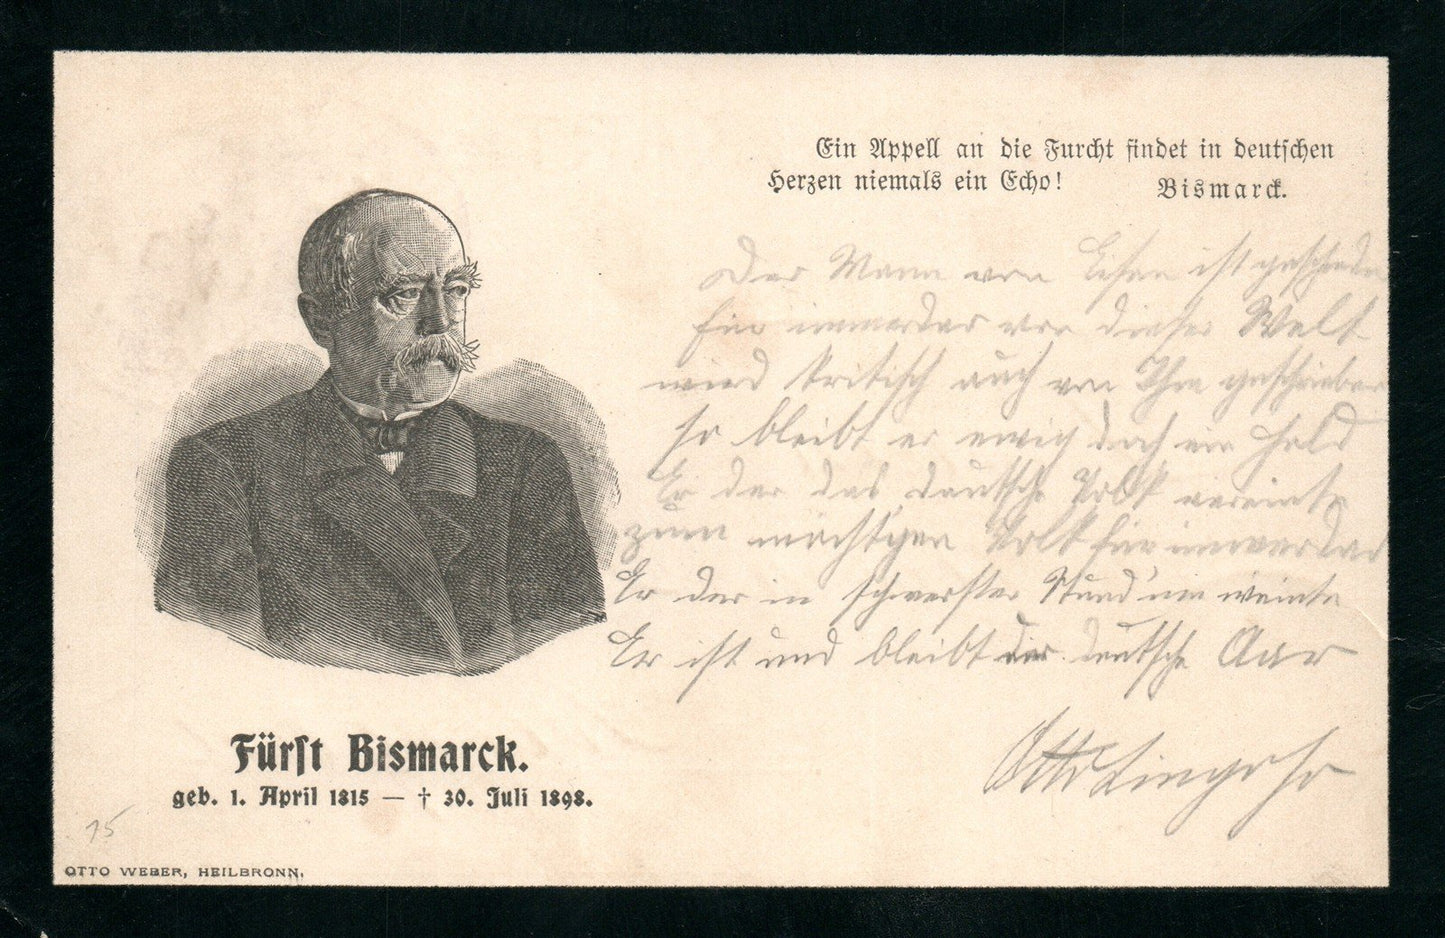 Ein Appell an die Furcht findet in deutschen
Herzen niemals ein Echo!
Bismarck.
Der Mann von Eisen ist geschieden
Für immerdar von dieser Welt.
wird kritisch auch von Ihm geschrieben
so bleibt er ewig doch ein Held
Er der das deutsche Volk vereinte
zum mächtigen Volk für immerdar
Er der in schwerster Stund' um weinte
Er ist und bleibt der deutsche Aar
Otto
Fürst Bismarck.
geb. 1. April 1815 — † 30. Juli 1898.
15
OTTO WEBER, HEILBRONN.